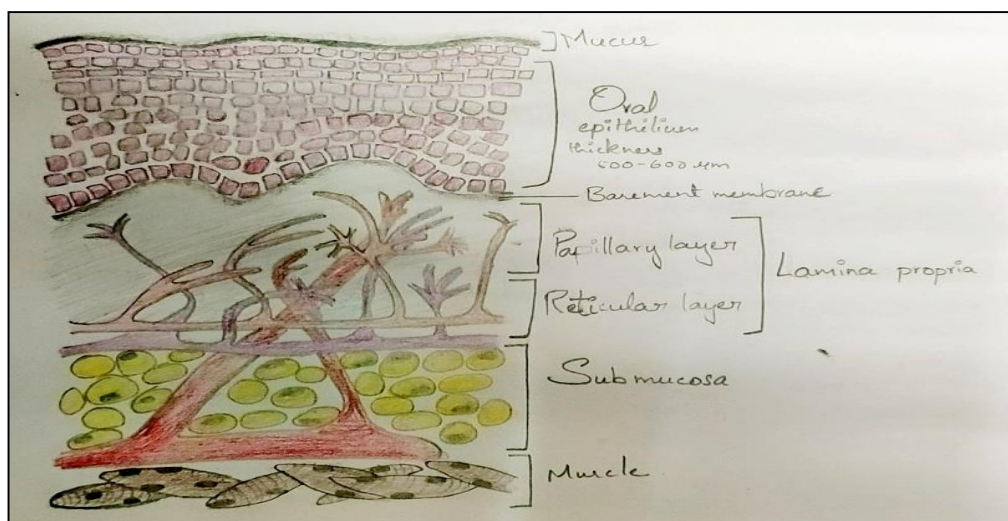 Mucus
Oral
epithilium
thickness
500-600 μm
Basement membrane
Papillary layer
Reticular layer
Lamina propria
Submucosa
Muscle